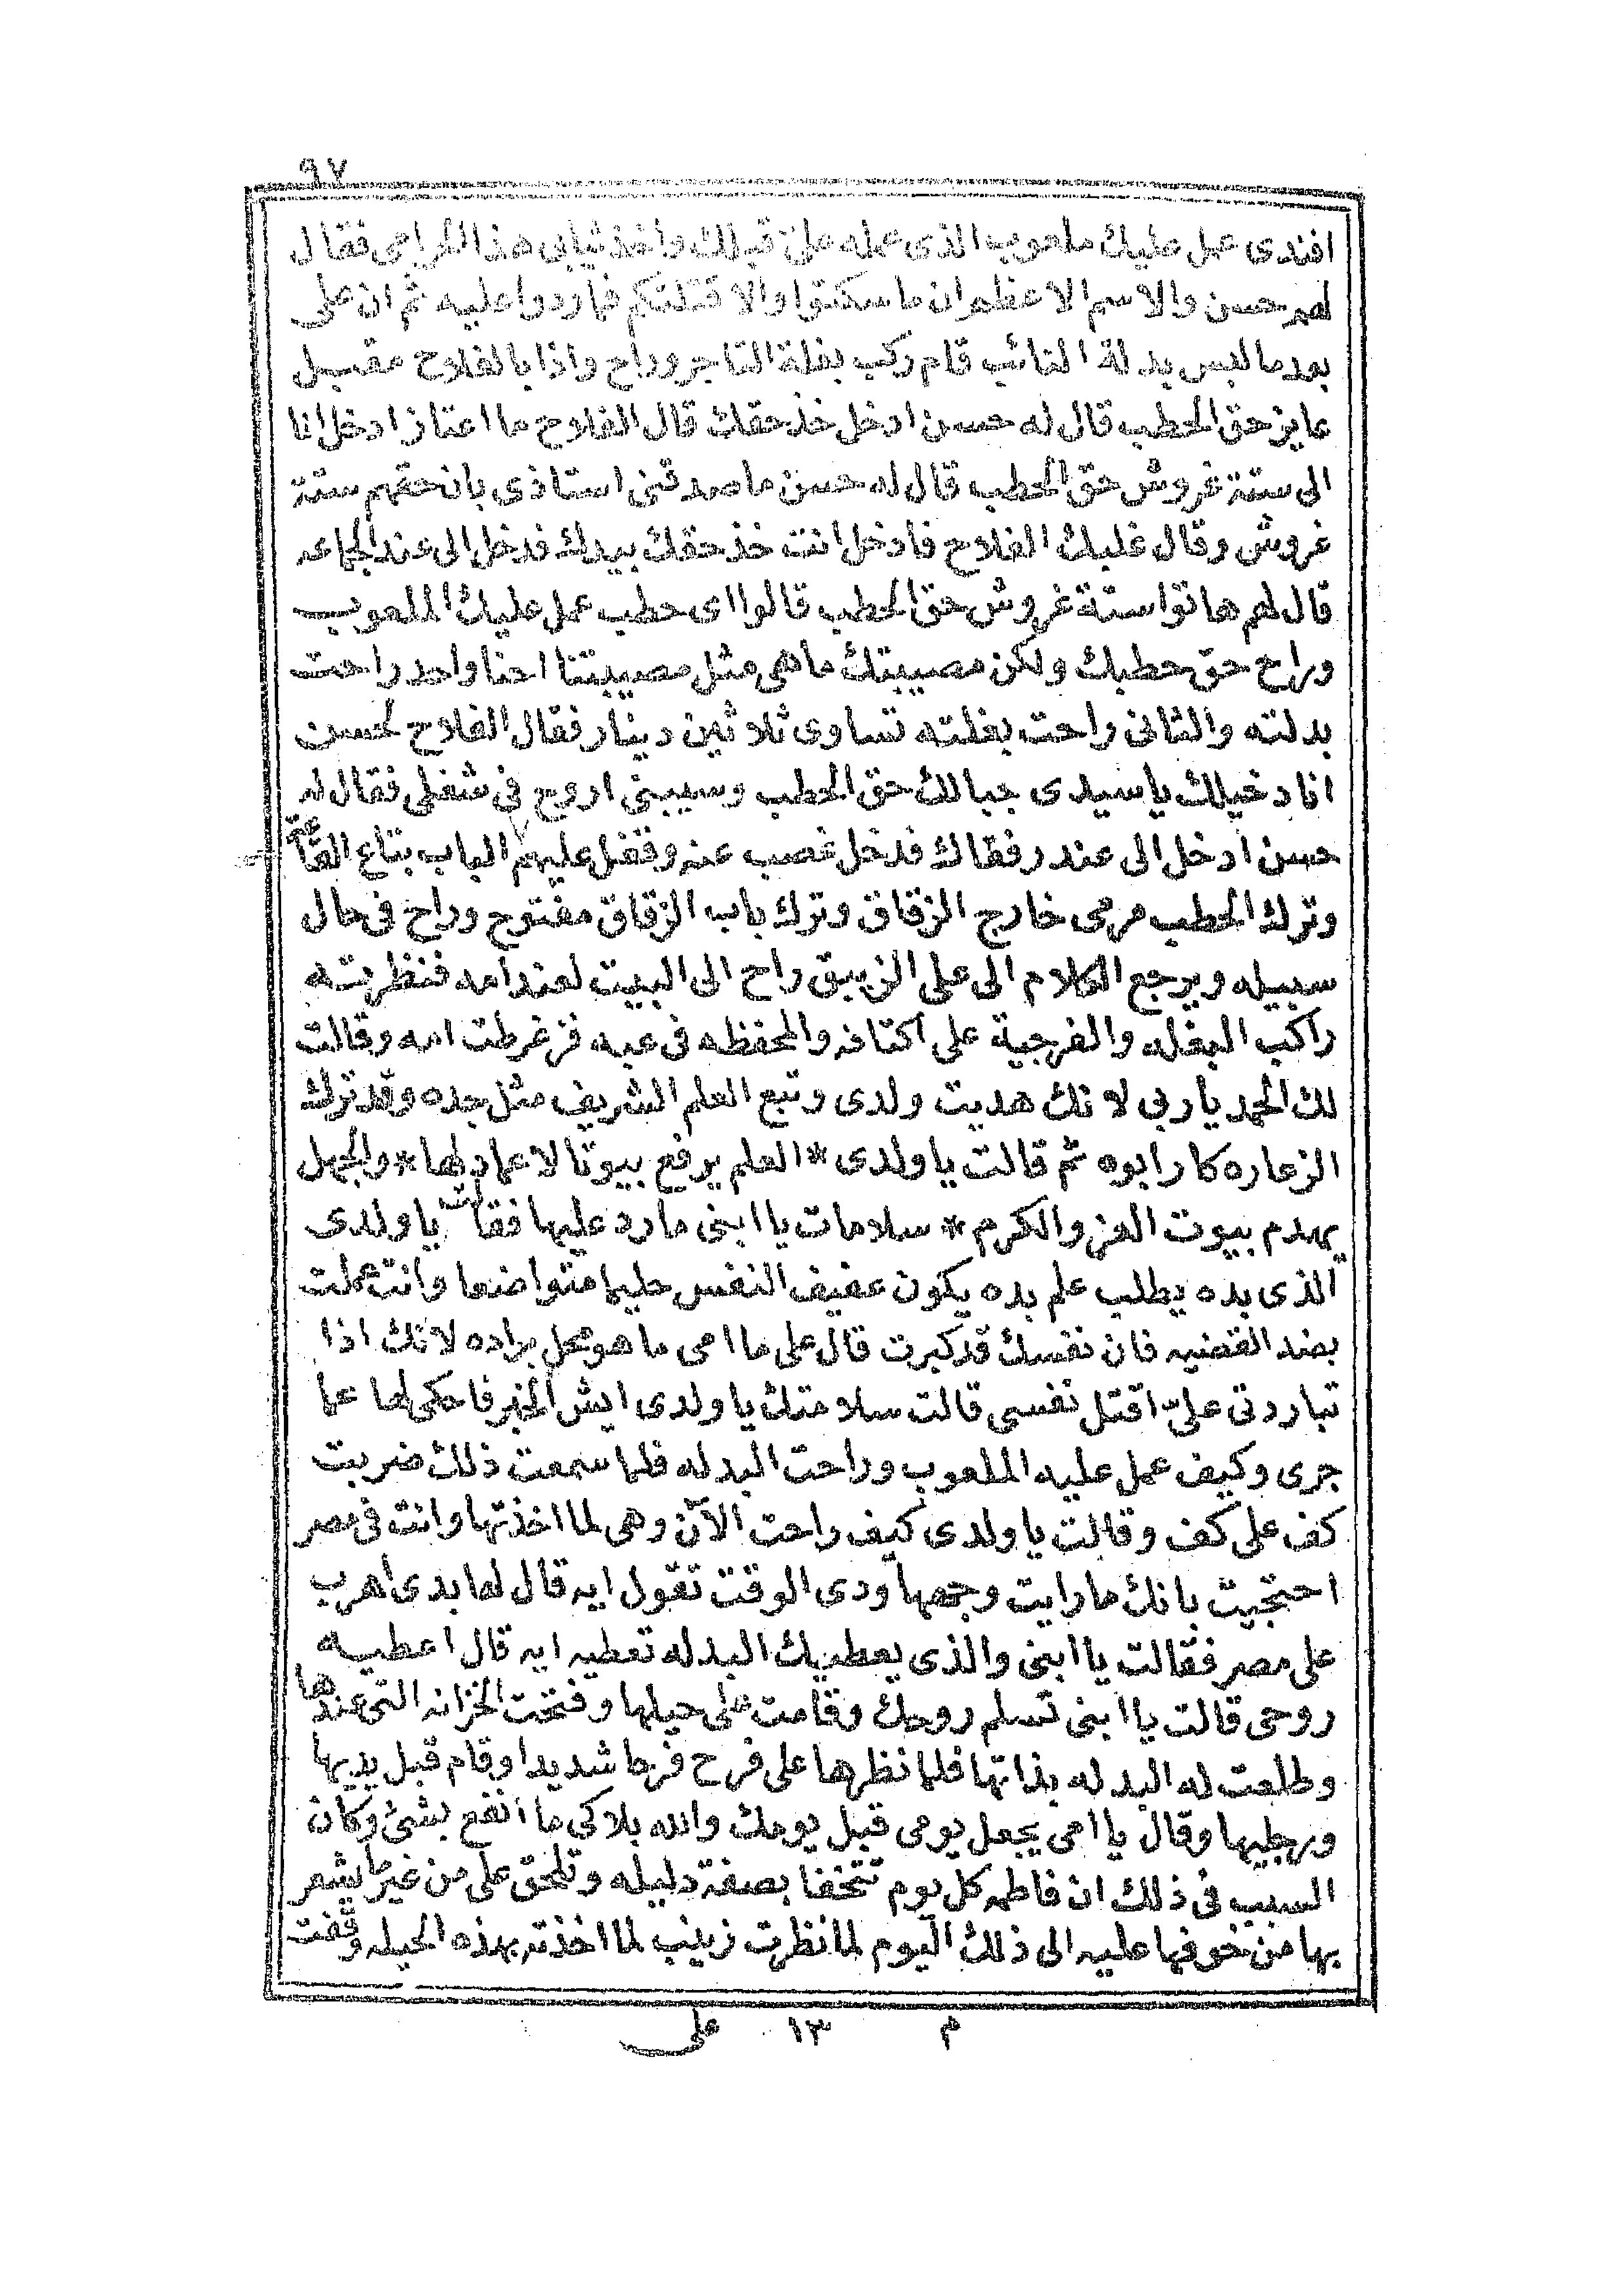 ٩٧
افندى عمل عليك ملعوب الذى عمله علىّ قبلك واخذ ثيابى هذا الحرامى فقال
لهم حسن والاسم الاعظم ان ما سكتوا والا قتلتكم فما ردوا عليه ثم ان على
بعد ما لبس بدلة النائب قام ركب بغلة التاجر وراح واذا بالفلاح مقبل
عايز حق الحطب قال له حسن ادخل خذ حقك قال الفلاح ما اعتاز ادخل انا
الى ستة غروش حق الحطب قال له حسن ما صدقنى استاذى بان حقهم ستة
غروش وقال غلبك الفلاح فادخل انت خذ حقك بيدك فدخل الى عند الجماعه
قال لهم هاتوا ستة غروش حق الحطب قالوا اى حطب عمل عليك الملعوب
وراح حق حطبك ولكن مصيبتك ما هى مثل مصيبتنا احنا واحد راحت
بدلته والثانى راحت بغلته تساوى ثلاثين دينار فقال الفلاح لحسن
انا دخيلك يا سيدى جبا لك حق الحطب وسيبنى اروح فى شغلى فقال له
حسن ادخل الى عند رفقاك فدخل غصب عنه وقفل عليهم الباب بتاع القاعة
وترك الحطب مرمى خارج الزقاق وترك باب الزقاق مفتوح وراح فى حال
سبيله ويرجع الكلام الى على الزيبق راح الى البيت لعند امه فنظرته
راكب البغله والفرجية على اكتافه والمحفظه فى عبه فزغرطت امه وقالت
لك الحمد يا ربى لانك هديت ولدى وتبع العلم الشريف مثل جده وقد ترك
الزعاره كار ابوه ثم قالت يا ولدى * العلم يرفع بيوتا لا عماد لها * والجهل
يهدم بيوت العز والكرم * سلامات يا ابنى ما رد عليها فقالت يا ولدى
الذى بده يطلب علم بده يكون عفيف النفس حليما متواضعا وانت عملت
بضد القضيه فان نفسك قد كبرت قال على ما امى ما هو محل براده لانك اذا
تباردتى علىّ اقتل نفسى قالت سلامتك يا ولدى ايش الخبر فاحكى لها عما
جرى وكيف عمل عليه الملعوب وراحت البدله فلما سمعت ذلك ضربت
كف على كف وقالت يا ولدى كيف راحت الآن وهى لما اخذتها وانت فى مصر
احتجيت بانك ما رايت وجهها ودى الوقت تقول ايه قال لها بدى اهرب
على مصر فقالت يا ابنى والذى يعطيك البدله تعطيه ايه قال اعطيه
روحى قالت يا ابنى تسلم روحك وقامت على حيلها وفتحت الخزانه التى عندها
وطلعت له البدله بذاتها فلما نظرها على فرح فرحا شديدا وقام قبل يديها
ورجليها وقال يا امى يجعل يومى قبل يومك والله بلاكى ما انفع بشئ وكان
السبب فى ذلك ان فاطمه كل يوم تتخفا بصفة دليله وتلحق على من غير ما يشعر
بها من خوفها عليه الى ذلك اليوم لما نظرت زينب لما اخذته بهذه الحيله وقفت
م ١٣ على